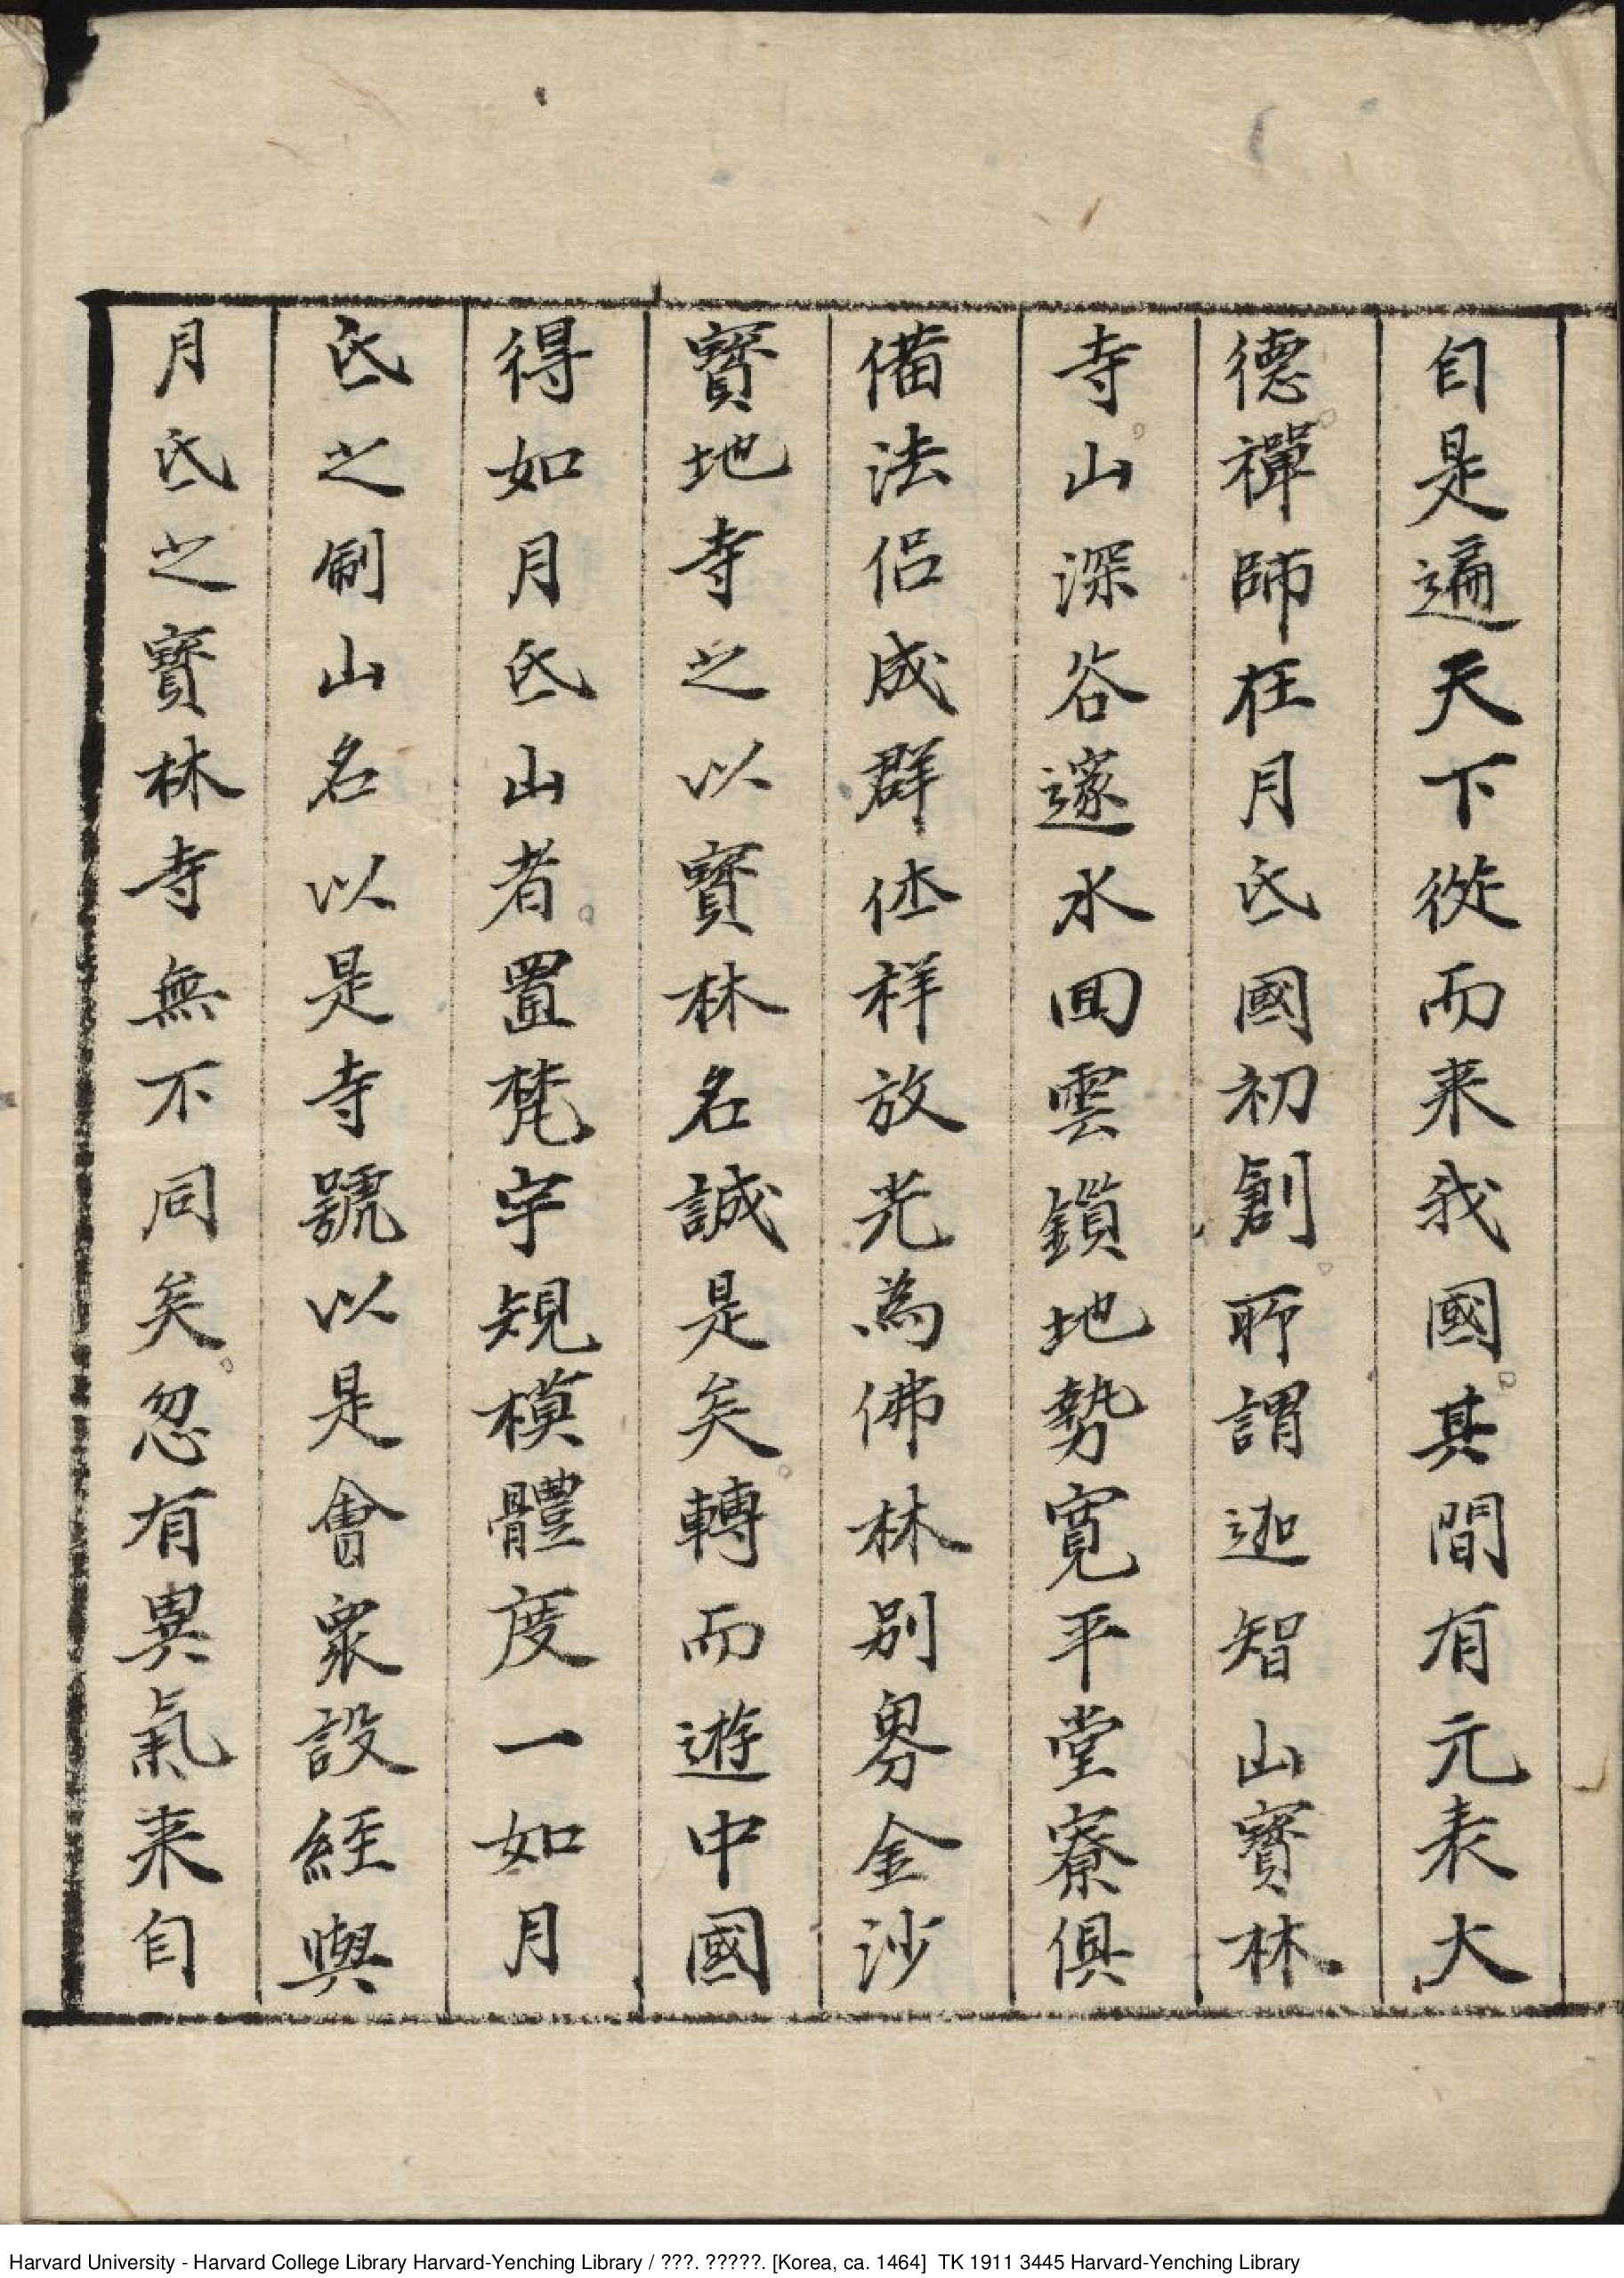 自是遍天下從而来我國其間有元表大
德禪師在月氏國初創所謂迦智山寳林
寺山深谷邃水回雲鎖地勢寛平堂寮俱
備法侣成群休祥放光為佛林别界金沙
寳地寺之以寳林名誠是矣轉而遊中國
得如月氏山者置梵宇規模體度一如月
氏之制山名以是寺號以是會衆設經與
月氏之寳林寺無不同矣忽有異氣来自
Harvard University - Harvard College Library Harvard-Yenching Library / ???. ?????. [Korea, ca. 1464] TK 1911 3445 Harvard-Yenching Library